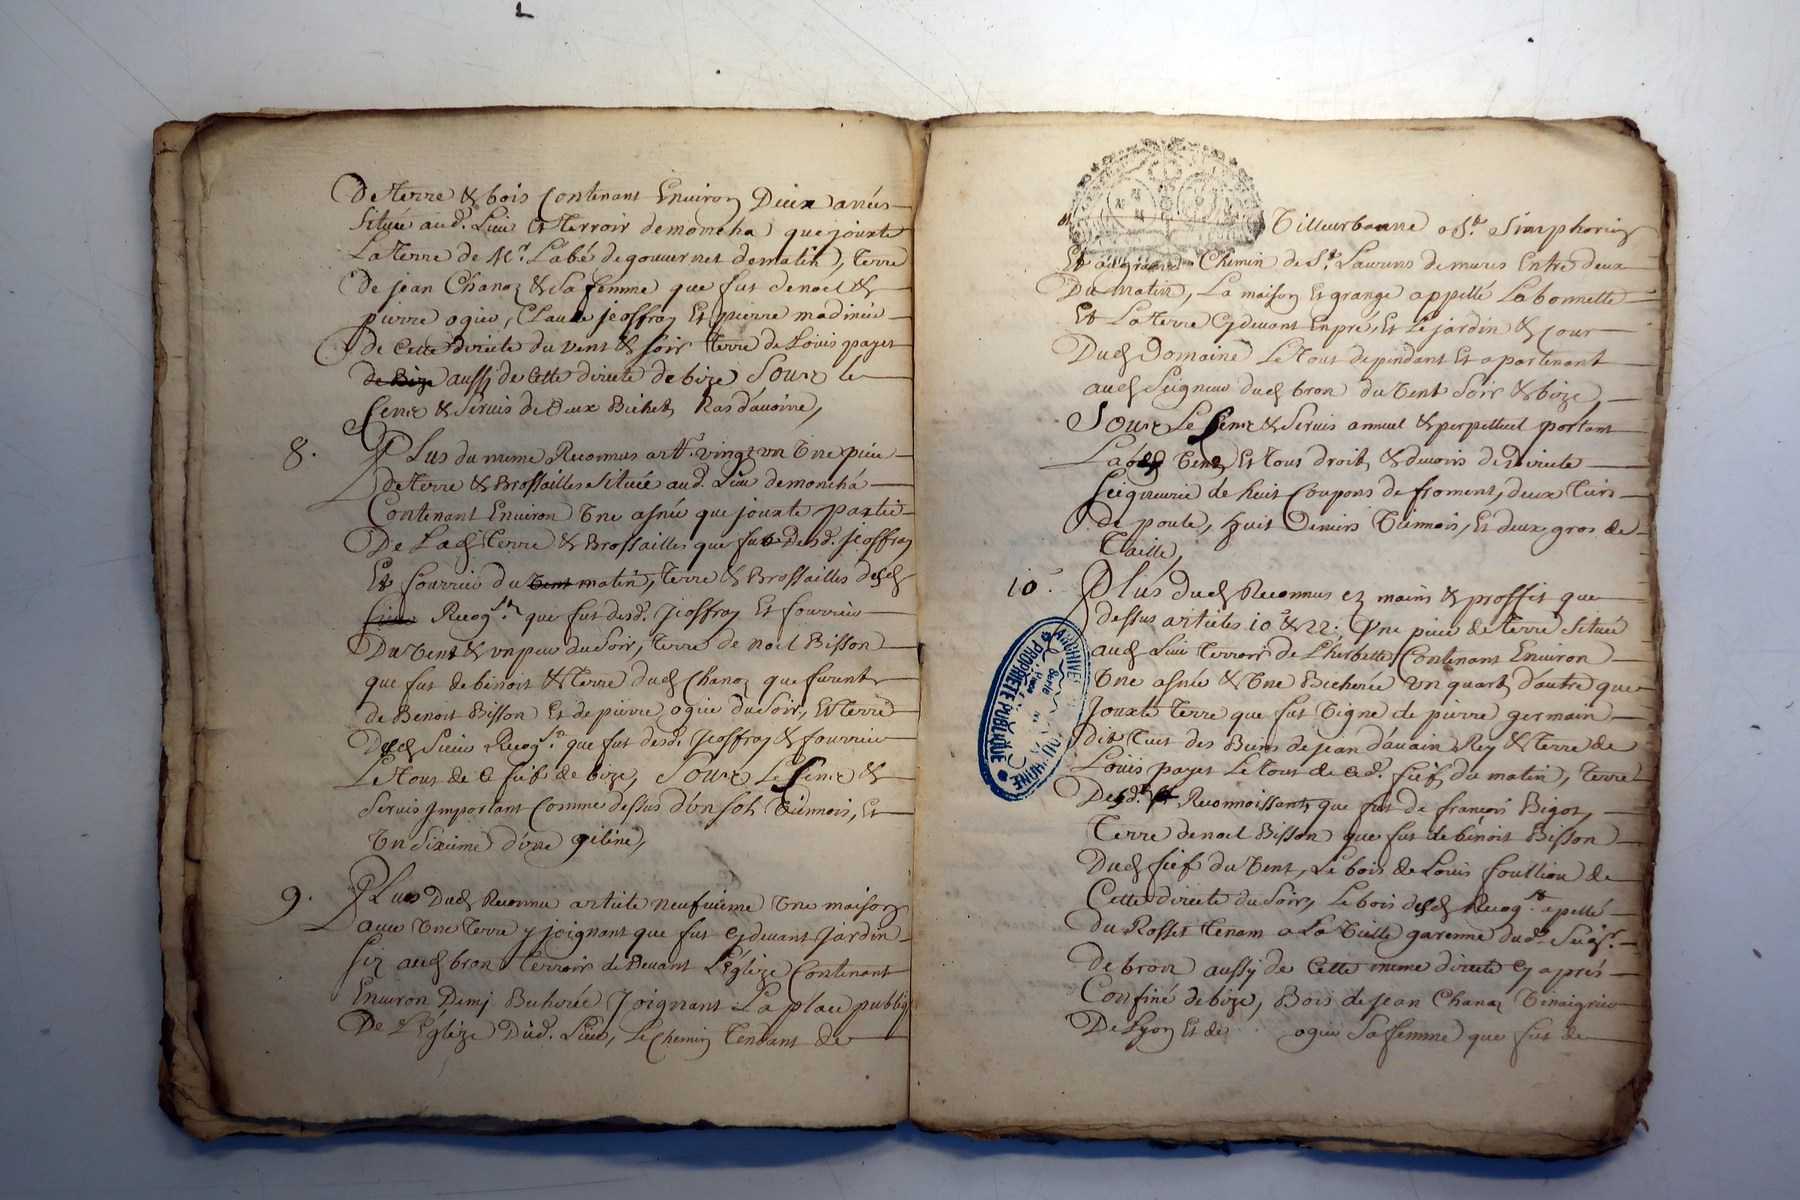 De terre & bois Contenant Environ Deux anées
Située aud. Lieu Et terroir demoncha que jouxte
La terre de Mr. L'abé degouvernet dematin, terre
De jean Chanoz & Sa femme que fut denoel &
pierre ogier, Claude jeoffray Et pierre madinier
de Cette directe du vent & soir terre de Louis payet
de Bize aussy de Cette directe de bize Sous le
Cens & Servis de deux Bichets Ras d'avoine,
8. Plus du meme Reconnus artt. vingt un Une piece
de terre & Brossailles Située aud. Lieu demoncha
Contenant Environ Une asnée que jouxte partie
De Lad terre & Brossailles que fut Desd. jeoffray
Et fourrier du vent matin, terre & Brossailles desd
Recog.ts que fut desd. Jeoffray Et fourrier
Du Vent & un peu du Soir, terre de noel Bisson
que fut de binoit & terre dud Chanoz que furent
de Benoit Bisson Et de pierre ogier du Soir, Et terre
Dud Sieur Recog.t que fut desd. Jeoffray & fourrier
Le tout de Ce fief de bize, Sous Le Cens &
Servis Important Comme dessus d'un sols Viennois, Et
Un Sixieme d'une geline,
9. Plus Dud Reconnu article neufvieme Une maison
avec Une terre y joignant que fut Cydevant Jardin
Siz aud bron terroir de Devant L'Eglize Contenant
Environ Demj Bicherée Joignant La place publiq
De L'Eglize Dud. Lieu, Le Chemin Tendant de
Villeurbanne a St. Simphorien
Et au grand Chemin de St. Laurens de mures Entre deux
Du Matin, La maison Et grange appellé Labonnette
Et La terre Cydevant En pré, Et Le jardin & Cour
Dud Domaine Le tout dependant Et apartenant
aud Seigneur dud bron du Vent Soir & bize,
Sous Le Cens & Servis annuel & perpetuel portant
Laods Vends Et tous droits & devoirs de directe
Seigneurie de huit Coupons de froment, deux tiers
de poule, huit Deniers Viennois, Et deux gros de
Taille,
10. Plus Dud Reconnus ez mains & proffit que
dessus articles 10 & 22. Une piece de terre Située
aud Lieu terroir de L'herbette Contenant Environ
Une asnée & Une Bicherée un quart d'autre que
Jouxte terre que fut Vigne de pierre germain
dit tuit des Biens de jean d'avain Rey & terre de
Louis payet Le tout de Ced. fief, du matin, terre
Desd. Reconnoissants que fut de françois Bigot,
Terre denoel Bisson que fut de binoit Bisson
Dud fief du Vent, Le bois de Louis foullion de
Cette directe du Soir, Le bois desd Recog.ts apellé
du Rosset tenant a La Vieille garenne dud. Seigr.
De bron aussy de Cette meme directe Cy aprés
Confiné de bize, Bois de jean Chanaz Vinaigrier
De Lyon Et de ogier Sa femme que fut de
ARCHIVES
DU RHONE
Série
PROPRIÉTÉ PUBLIQUE